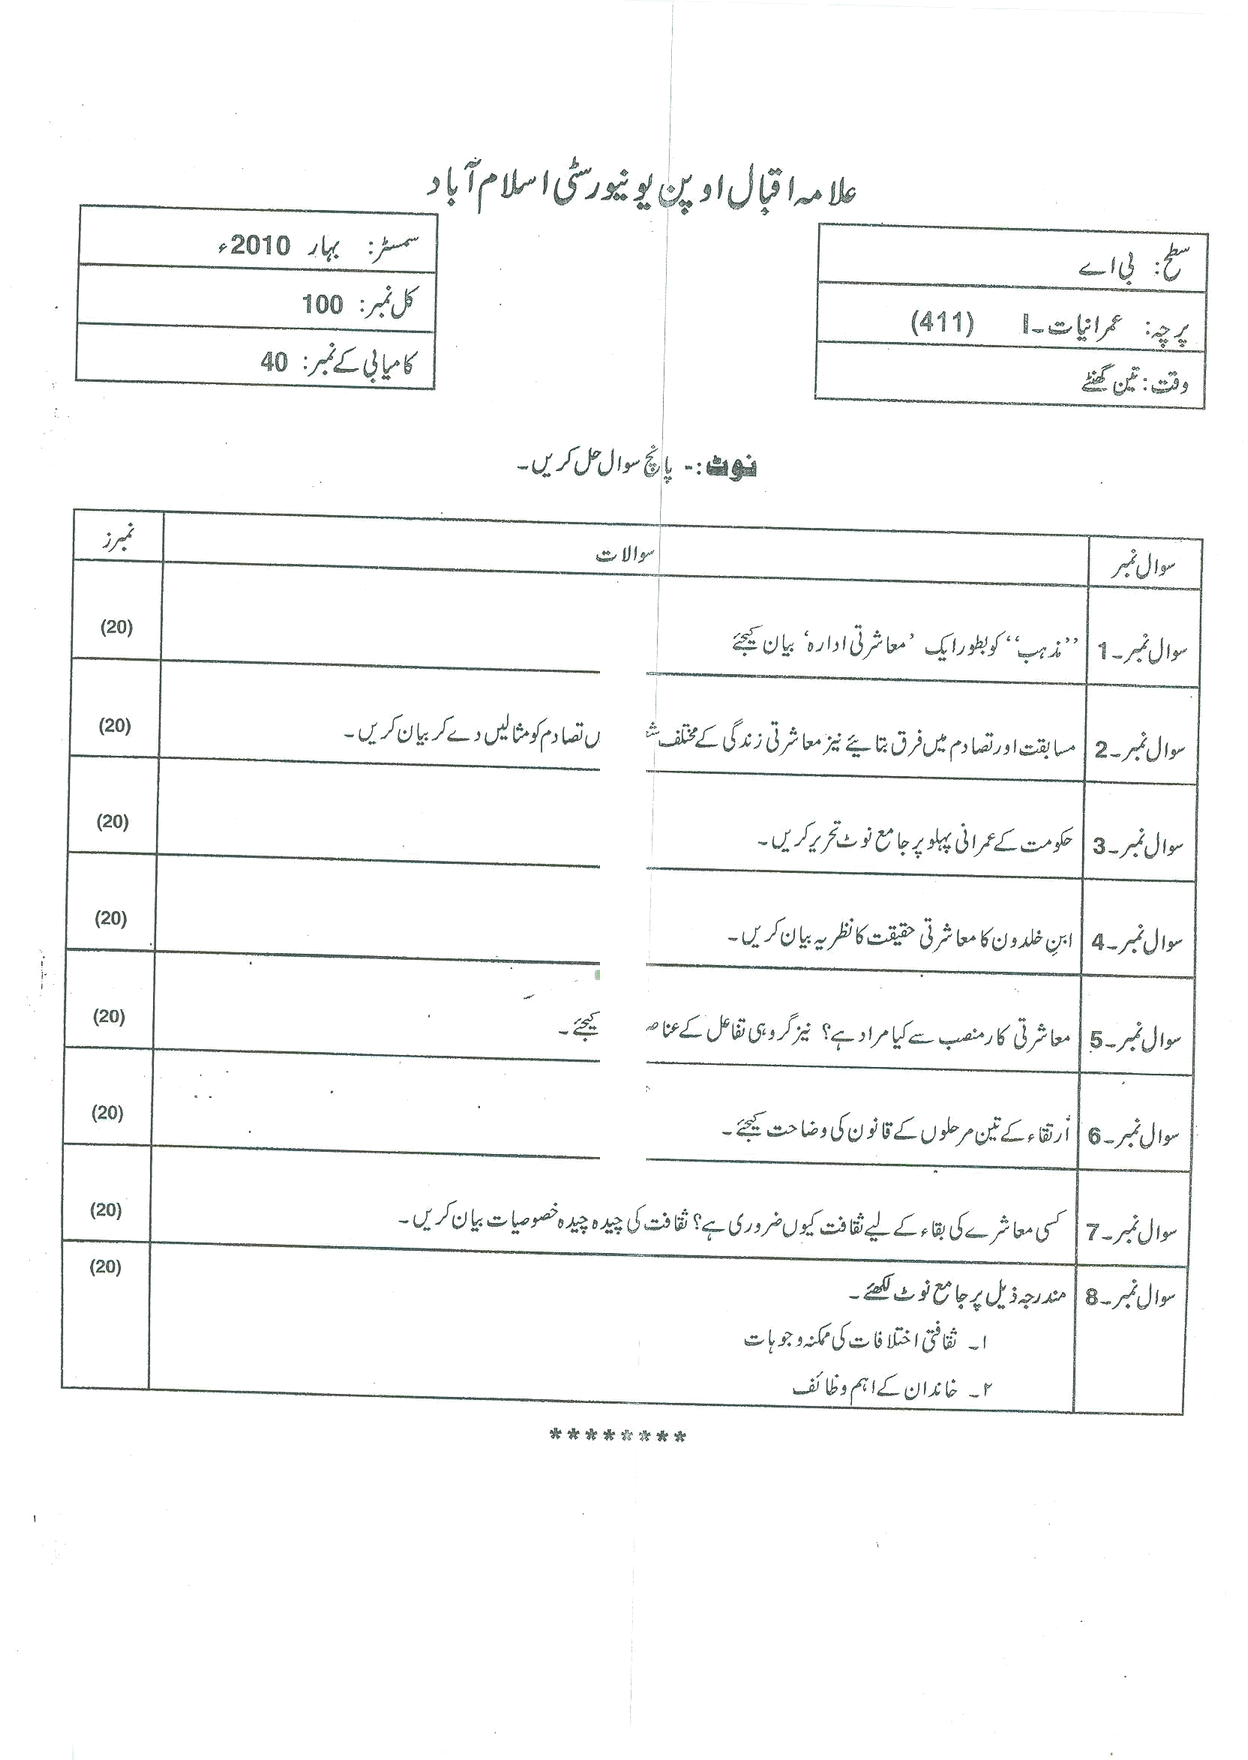 علامہ اقبال اوپن یونیورسٹی اسلام آباد
سطح: بی اے
پرچہ: عمرانیات۔I (411)
وقت: تین گھنٹے
سمسٹر: بہار 2010ء
کل نمبر: 100
کامیابی کے نمبر: 40
نوٹ:- پانچ سوال حل کریں۔
سوال نمبر سوالات نمبرز
سوال نمبر۔1 ’’مذہب‘‘ کو بطور ایک ’معاشرتی ادارہ‘ بیان کیجئے (20)
سوال نمبر۔2 مسابقت اور تصادم میں فرق بتایئے نیز معاشرتی زندگی کے مختلف تصادم کو مثالیں دے کر بیان کریں۔ (20)
سوال نمبر۔3 حکومت کے عمرانی پہلو پر جامع نوٹ تحریر کریں۔ (20)
سوال نمبر۔4 ابنِ خلدون کا معاشرتی حقیقت کا نظریہ بیان کریں۔ (20)
سوال نمبر۔5 معاشرتی کارمنصب سے کیا مراد ہے؟ نیز گروہی تفاعل کے کیجئے۔ (20)
سوال نمبر۔6 اُرتقاء کے تین مرحلوں کے قانون کی وضاحت کیجئے۔ (20)
سوال نمبر۔7 کسی معاشرے کی بقاء کے لیے ثقافت کیوں ضروری ہے؟ ثقافت کی چیدہ چیدہ خصوصیات بیان کریں۔ (20)
سوال نمبر۔8 مندرجہ ذیل پر جامع نوٹ لکھئے۔ (20)
۱۔ ثقافتی اختلافات کی ممکنہ وجوہات
۲۔ خاندان کے اہم وظائف
********